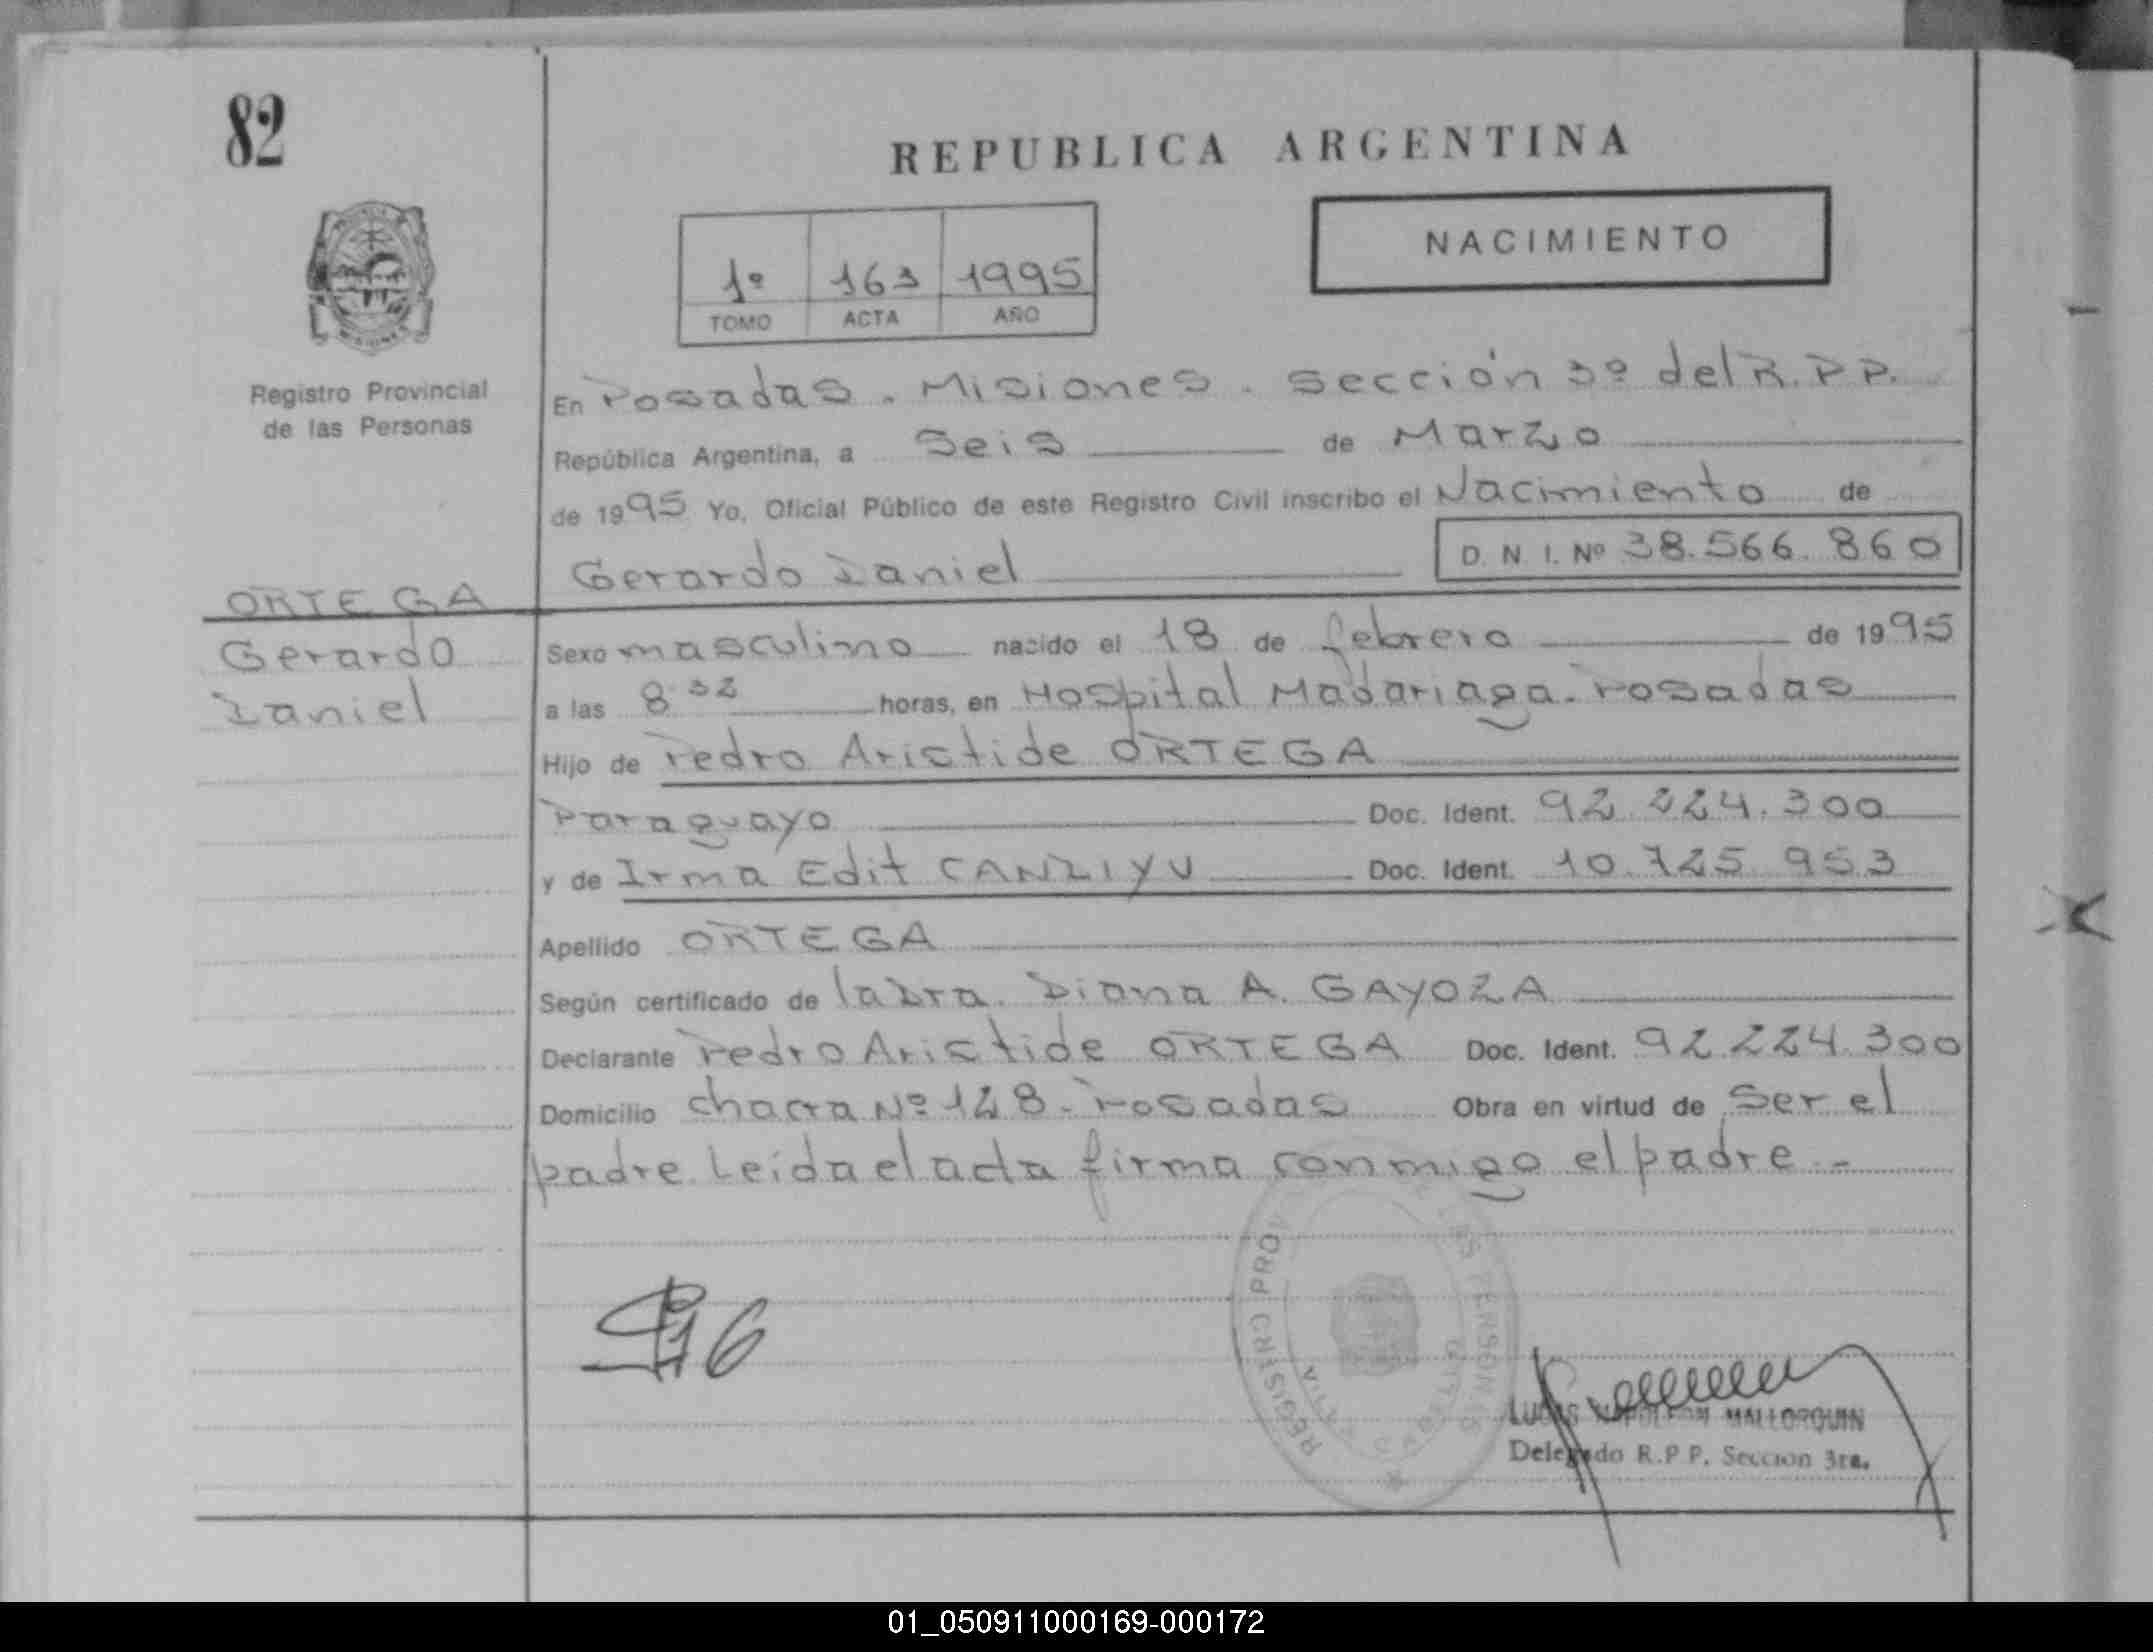 82
REPUBLICA ARGENTINA
NACIMIENTO
1º 163 1995
TOMO ACTA AÑO
Registro Provincial
de las Personas
En Posadas. Misiones. Sección 3º del R.P.P.
República Argentina, a Seis de Marzo
de 1995 Yo, Oficial Público de este Registro Civil inscribo el Nacimiento de
Gerardo Daniel D. N. I. Nº 38.566.860
ORTEGA
Gerardo
Daniel
Sexo masculino nacido el 18 de febrero de 1995
a las 8 32 horas, en Hospital Madariaga. Posadas
Hijo de Pedro Aristide ORTEGA
Paraguayo Doc. Ident. 92.224.300
y de Irma Edit CANZIYU Doc. Ident. 10.725.953
Apellido ORTEGA
Según certificado de la Dra. Diana A. GAYOZA
Declarante Pedro Aristide ORTEGA Doc. Ident. 92.224.300
Domicilio chacra Nº 128. Posadas Obra en virtud de Ser el
padre. Leida el acta firma conmigo el padre.-
REGISTRO PROV LAS PERSONAS
MALLORQUIN
Delegado R.P.P. Seccion 3ra.
01_050911000169-000172